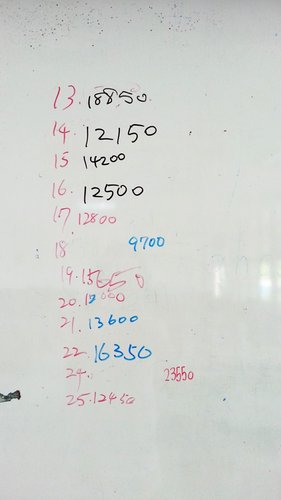 13. 18850
14. 12150
15 14200
16. 12500
17. 12800
18 9700
19.
20.
21. 13600
22. 16350
24. 23550
25. 12450